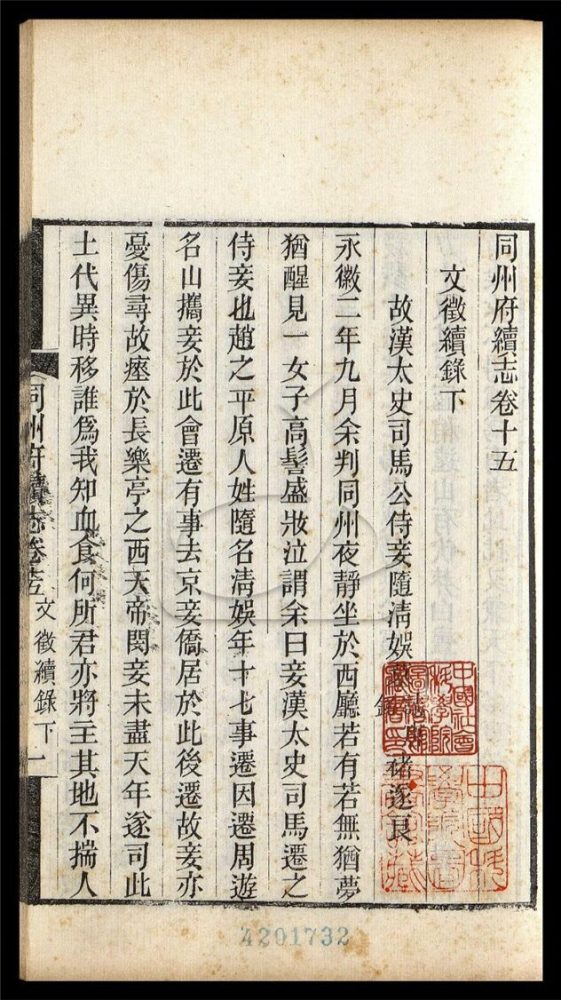 同州府續志卷十五
文徵續錄下
故漢太史司馬公侍妾隨淸娛 銘 褚遂良
永徽二年九月余判同州夜靜坐於西廳若有若無猶夢
猶醒見一女子高髻盛妝泣謂余曰妾漢太史司馬遷之
侍妾也趙之平原人姓隨名淸娛年十七事遷因遷周遊
名山攜妾於此會遷有事去京妾僑居於此後遷故妾亦
憂傷尋故瘞於長樂亭之西天帝閔妾未盡天年遂司此
土代異時移誰爲我知血食何所君亦將主其地不揣人
同州府續志卷十五 文徵續錄下 一
4201732